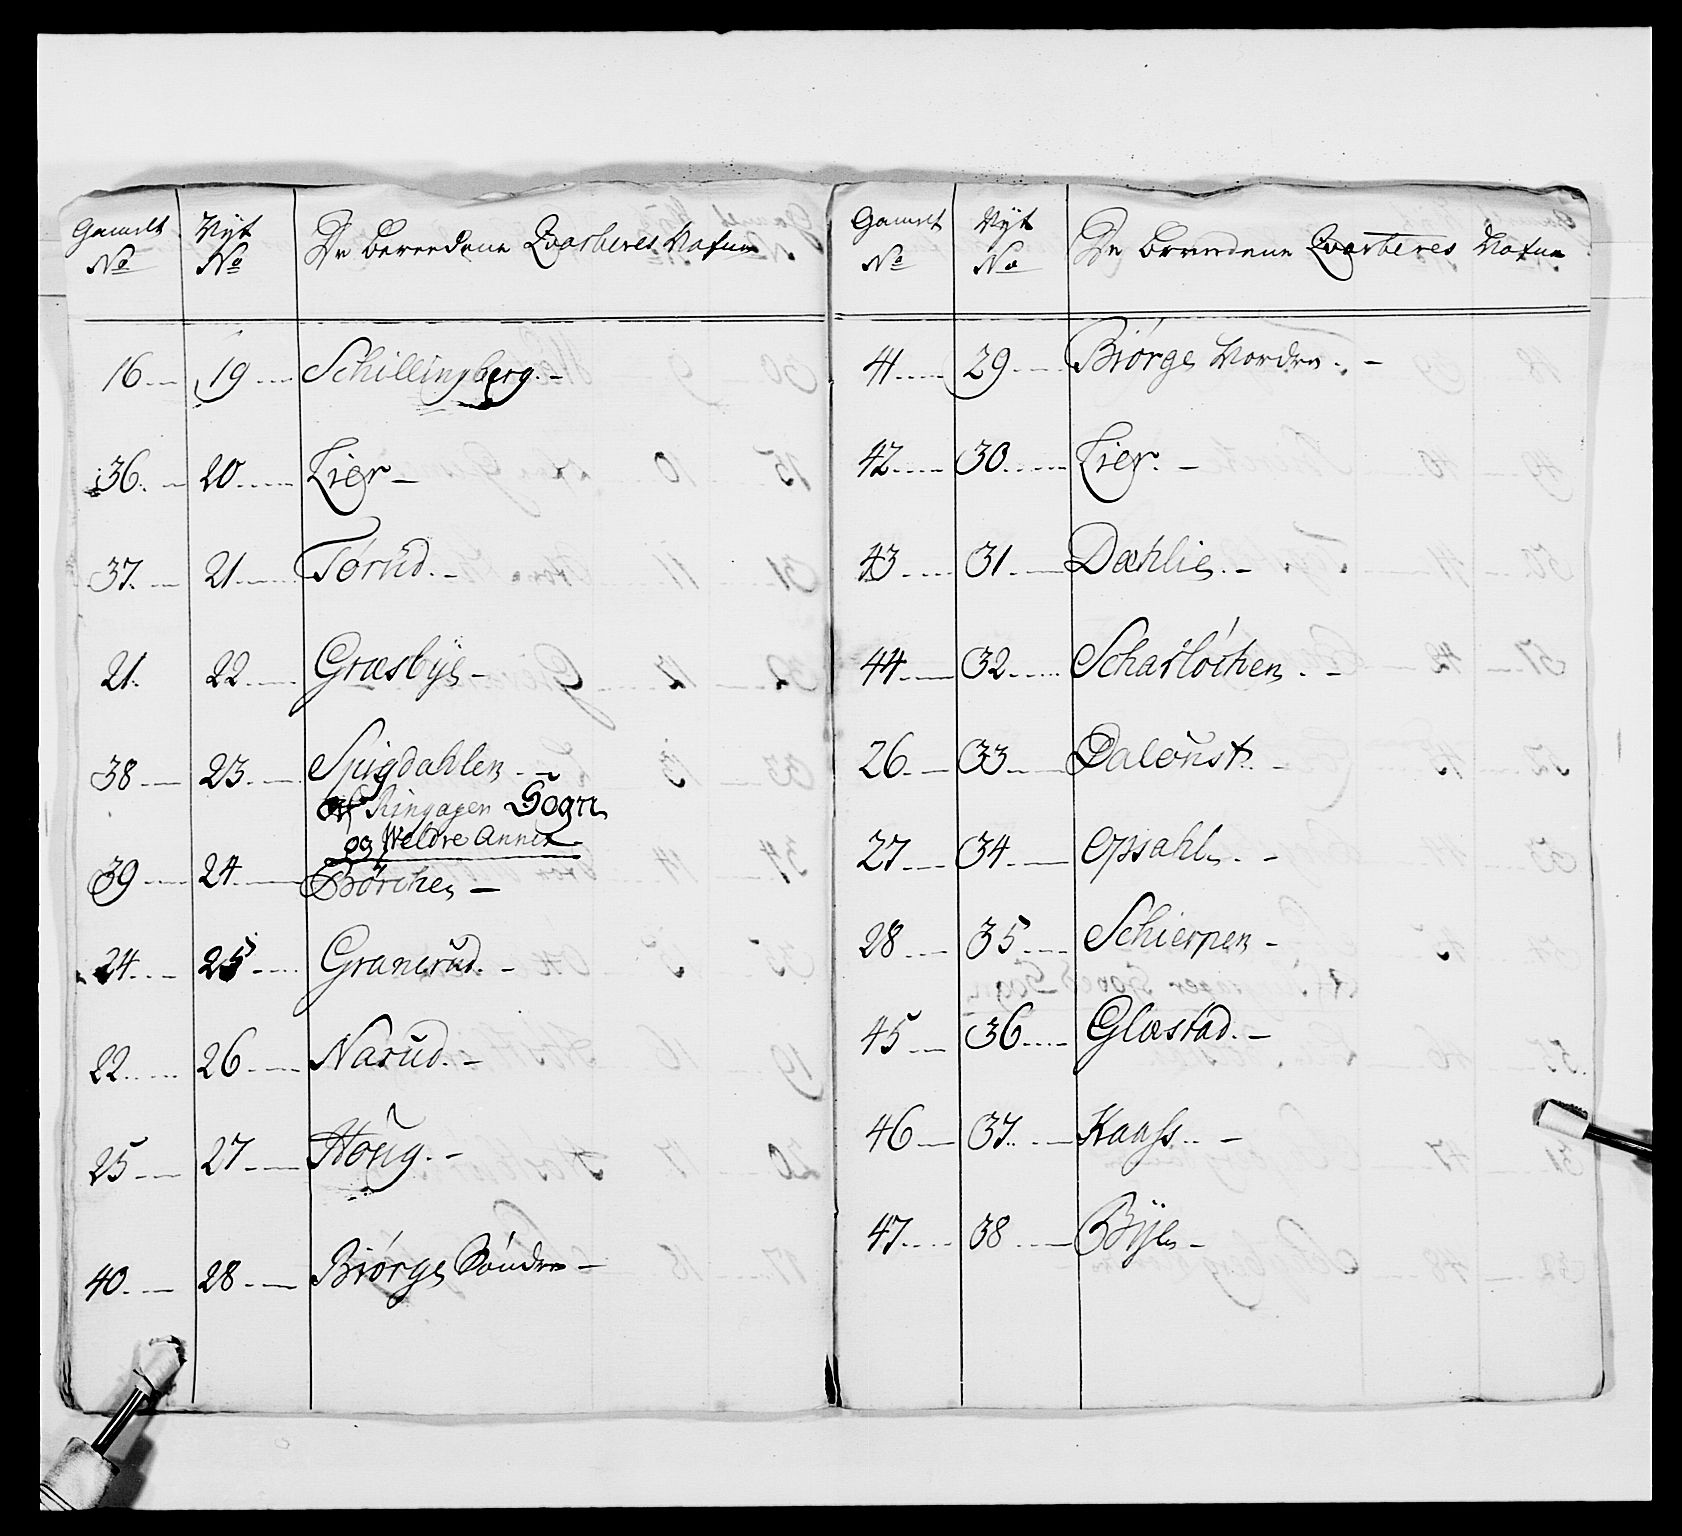 Gamelt Nyt De bereedene Qvarteres Nafne
No No
16 19 Schillingberg.
36. 20 Lier
37. 21 Tørud.
21. 22 Græsbye
38 23. Spigdahlen.
af Ringsagen Sogn
og Weldre Annex
39 24. Børche
24. 25 Granerud.
22. 26 Narud.
25 27 Houg.
40. 28 Biørge Søndre
Gamelt Nyt De bereedene Qvarteres Nafne
No No
41 29 Biørge Nordre.
42 30. Lier.
43 31. Dæhlie.
44 32 Scharløchen.
26. 33 Dalóust.
27. 34 Opsahl.
28 35 Schierpen
45 36 Glæstad.
46 37. Kaass.
47. 38 Bye